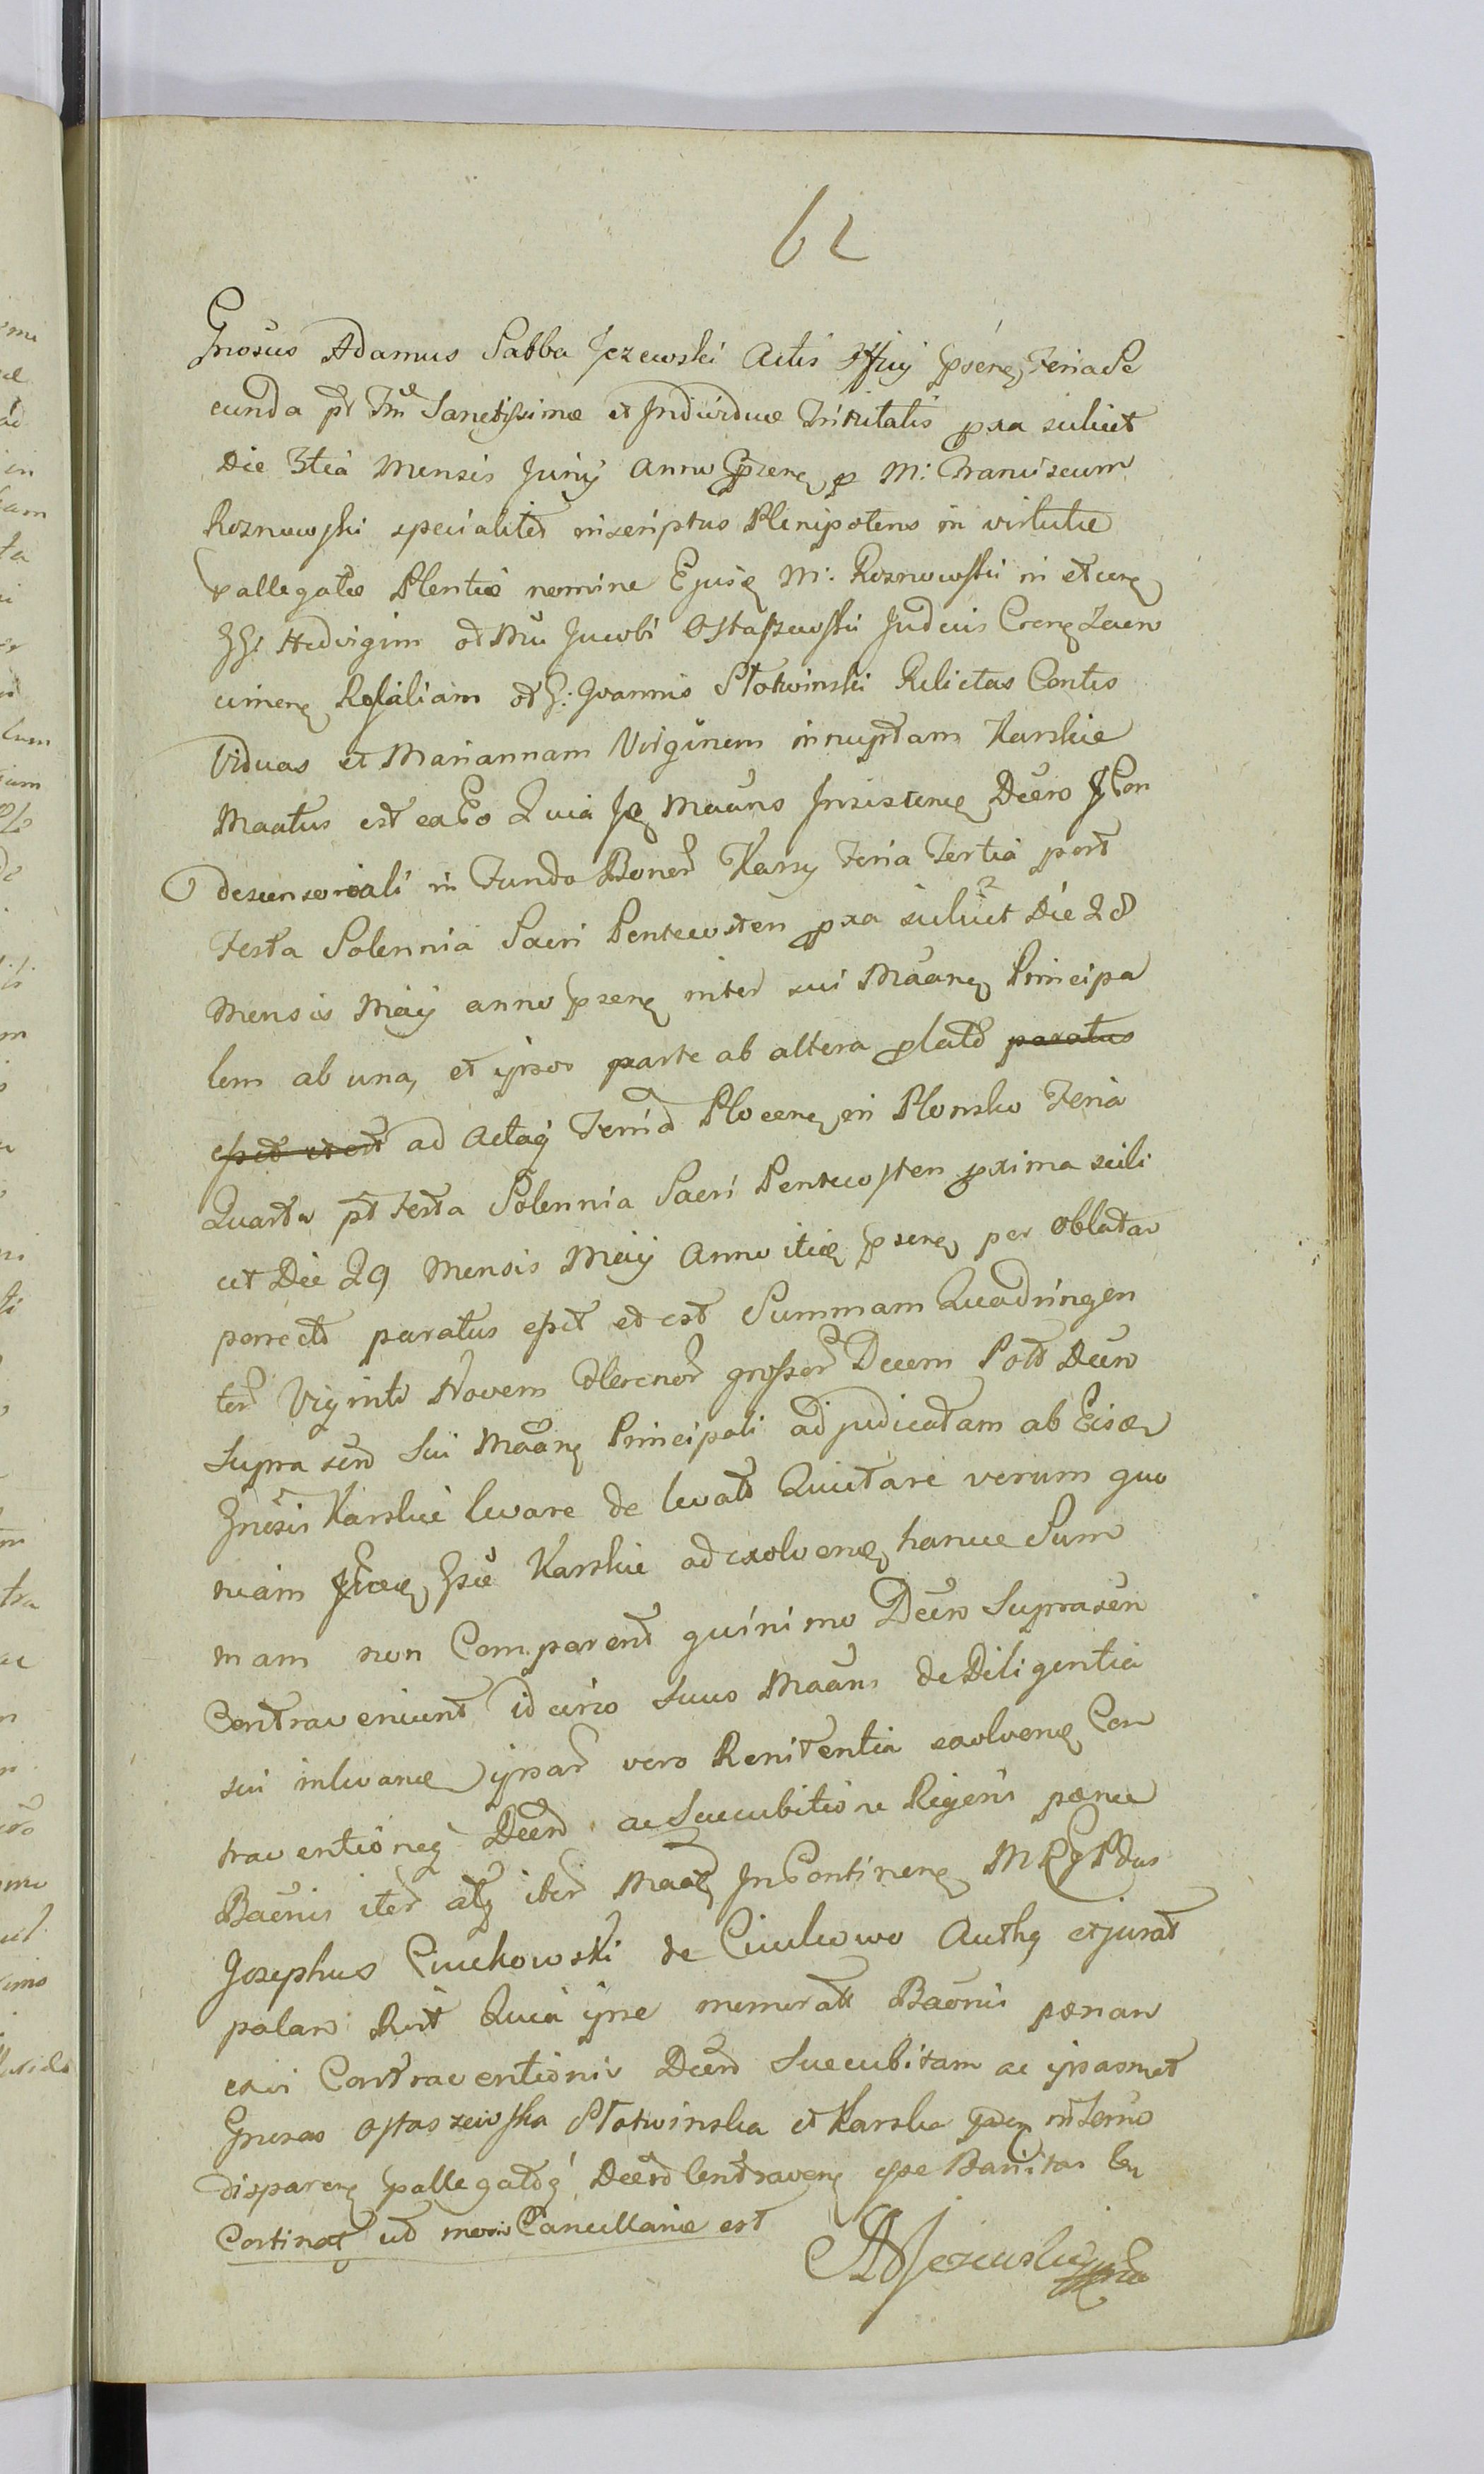 62
Gnosus Adamus Sabba Jezewski Actis Pnsrij pserę Feria Se
cunda pt Fm Sanctissimæ et Individuæ Trinitatis pxa scilicet
Die 3tia Mensis Junij anno pserę p M: Franciscum
Roznowski specialiter inscriptus Plenipotens in virtute
pallegatæ Plentiæ nomine Ejusę M: Roznowski in et cerę
GG: Hedvigim ot Mu Jacobi Ostaszewski Judicis Crenę Zacro
cimenę Rosaliam ot G: Joannis Słotwinski Relictas Contes
Viduas et Mariannam Virginem innuptam Karskie
Maatus est ea Eo Quia Je Maans Insistenę Decro Con
descensoriali in Fundo Bonor Karsy Feria Tertia post
Festa Solennia Sacri Pentecosten pxa scilicet Die 28
Mensis Maij anno pserę inter sui Maanę Principa
lem ab una, et ipsos parte ab altera plato paratus
esset et est ad Actaq Terrid Plocenę in Plonsko Feria
Quarta pt Festa Solennia Sacri Pentecosten pxima scili
cet Die 29 Mensis Maij Anno itię pserę per oblatar
porrecto paratus esset et est Summam Quadringen
tor Viginti Novem Florenor grossor Decem Polt Decro
Supra scro Sui Maanę Principali adjudicatam ab Eisdę
Gnosis Karskie levare de levato Quietare verum quo
niam Gsæ Karskie ad exolvenę hancce Sum
mam non Comparent quinimo Decro Suprascro
Contraveniunt idcirco Suus Maans de Diligentia
sui inlevanę ipsar vero Renitentia exolvenę Con
traventioneq Decro ac Succubitione Rigoris pænæ
Baonis iter atq iter Maatę In Continenę MRGPDus
Josephus Ciechowski de Ciechowo Authę et jurat
palam Rcit Quia ipse memorati Baonis pænam
exvi Contraventionis Decro Succubitam ac ipsasmet
Gnosas Ostaszewska Słotwinska et Karska in termo
disparenę pallegatoq Decro Contravenę esse Banitas
Continatę ut moris Cancellariæ est
A S Jezewski